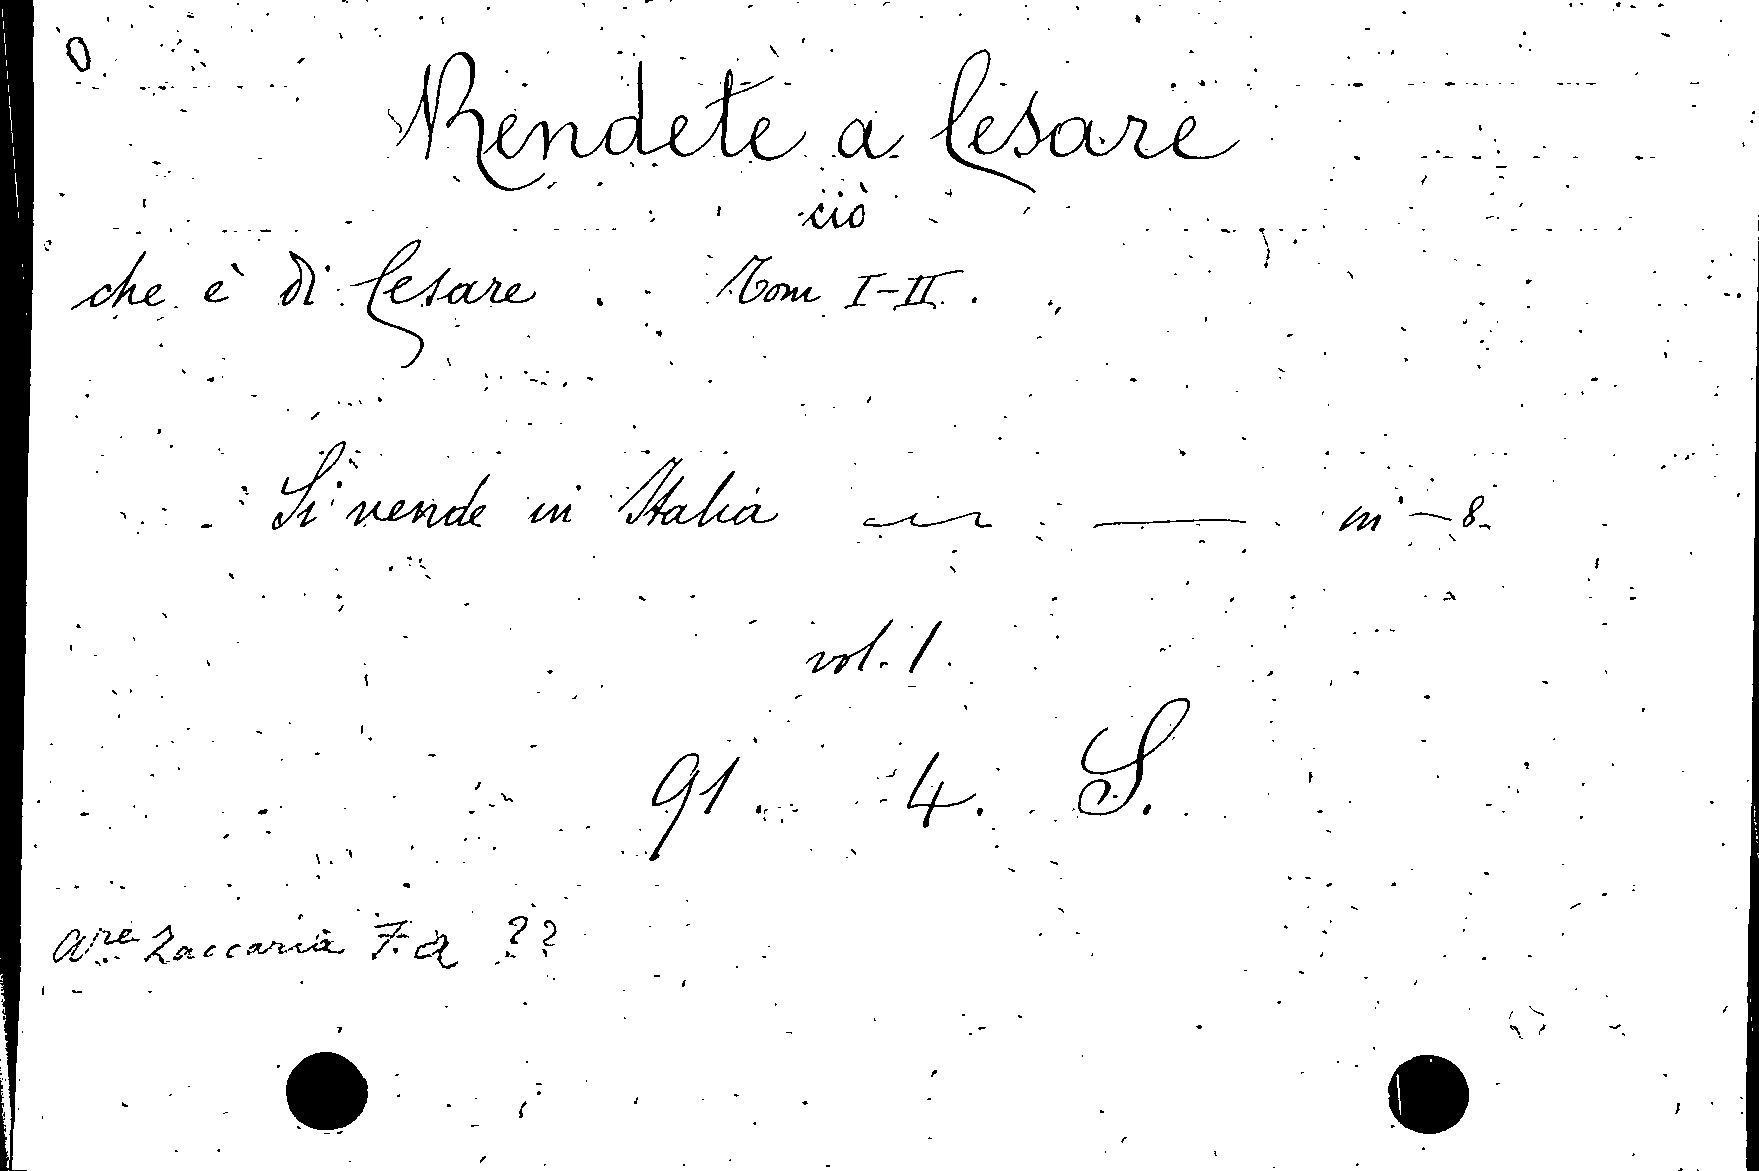 0
Rendete a Cesare
ciò
che è di Cesare. Tom I-II.
Si vende in Italia — — in-8.
vol. 1.
91. 4. S.
Are Zaccaria F. A ??